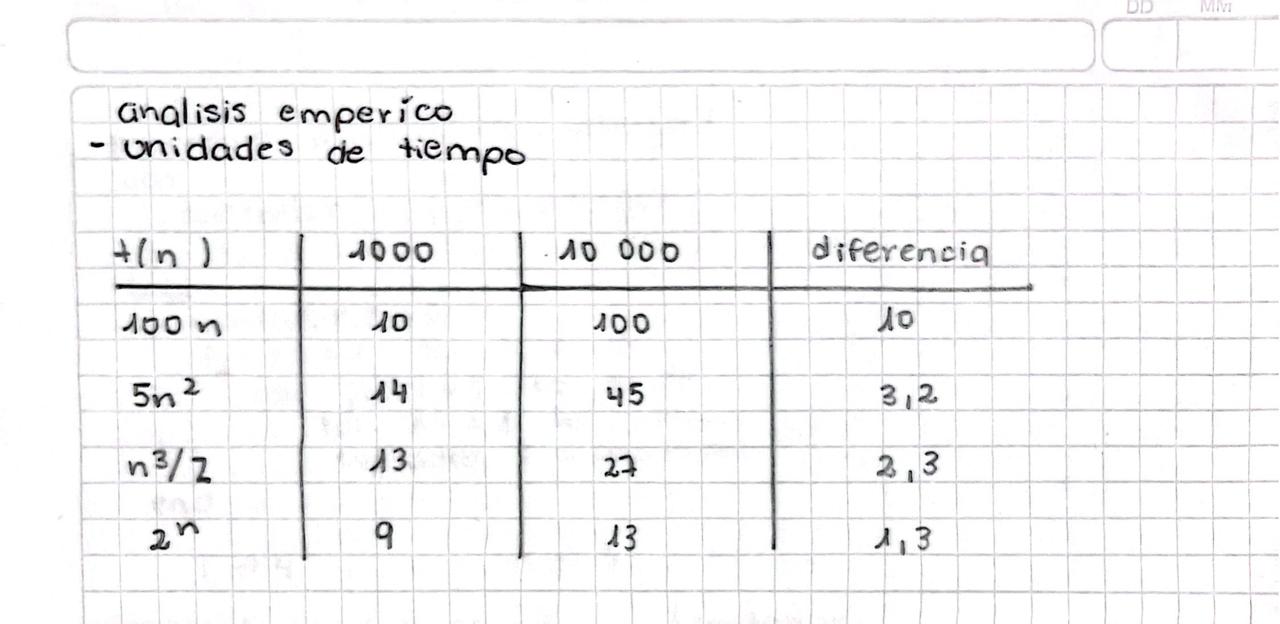 DD MM
analisis emperíco
- unidades de tiempo
t(n) 1000 10 000 diferencia
100 n 10 100 10
5n² 14 45 3,2
n³/2 13 27 2,3
2ⁿ 9 13 1,3